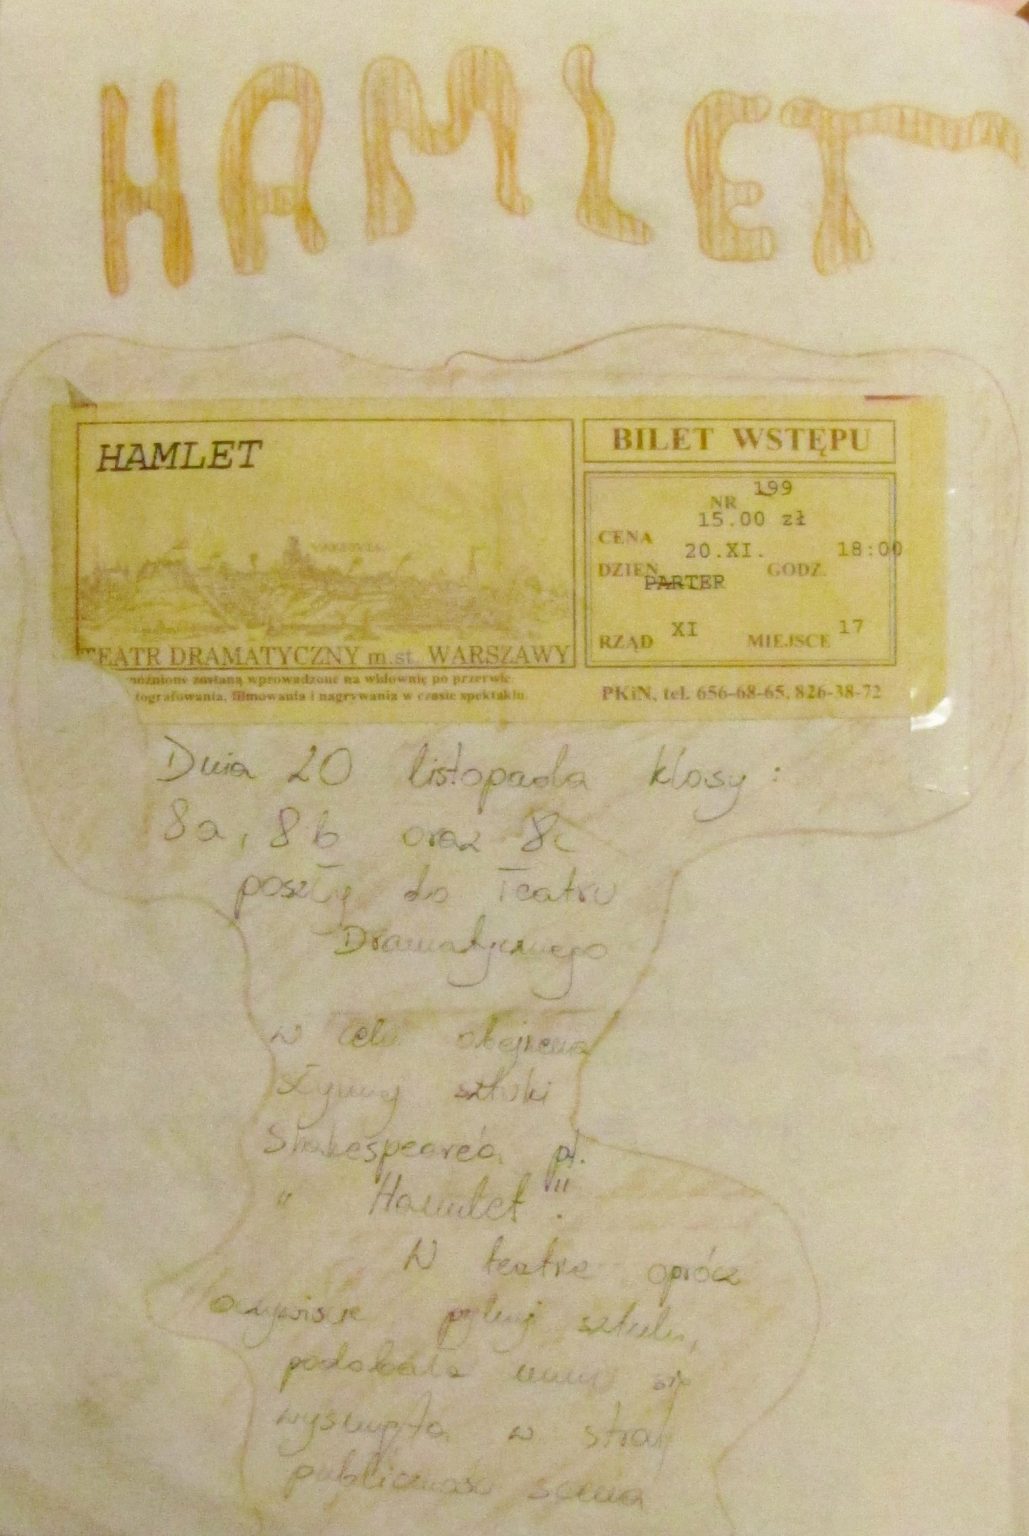 HAMLET
HAMLET
WARSZAWA
TEATR DRAMATYCZNY m.st. WARSZAWY
zostaną wprowadzone na widownię po przerwie.
filmowania i nagrywania w czasie spektaklu.
BILET WSTĘPU
NR 199
CENA 15.00 zł
DZIEŃ 20.XI. GODZ. 18:00
PARTER
RZĄD XI MIEJSCE 17
PKiN, tel. 656-68-65, 826-38-72
Dnia 20 listopada klasy :
8a, 8b oraz 8c
poszły do Teatru
Dramatycznego
w celu obejrzenia
słynnej sztuki
Shakespeare'a pt.
" Hamlet ".
W teatrze oprócz
oczywiście sztuki,
podobała mi się
wysunięta w stronę
publiczności scena